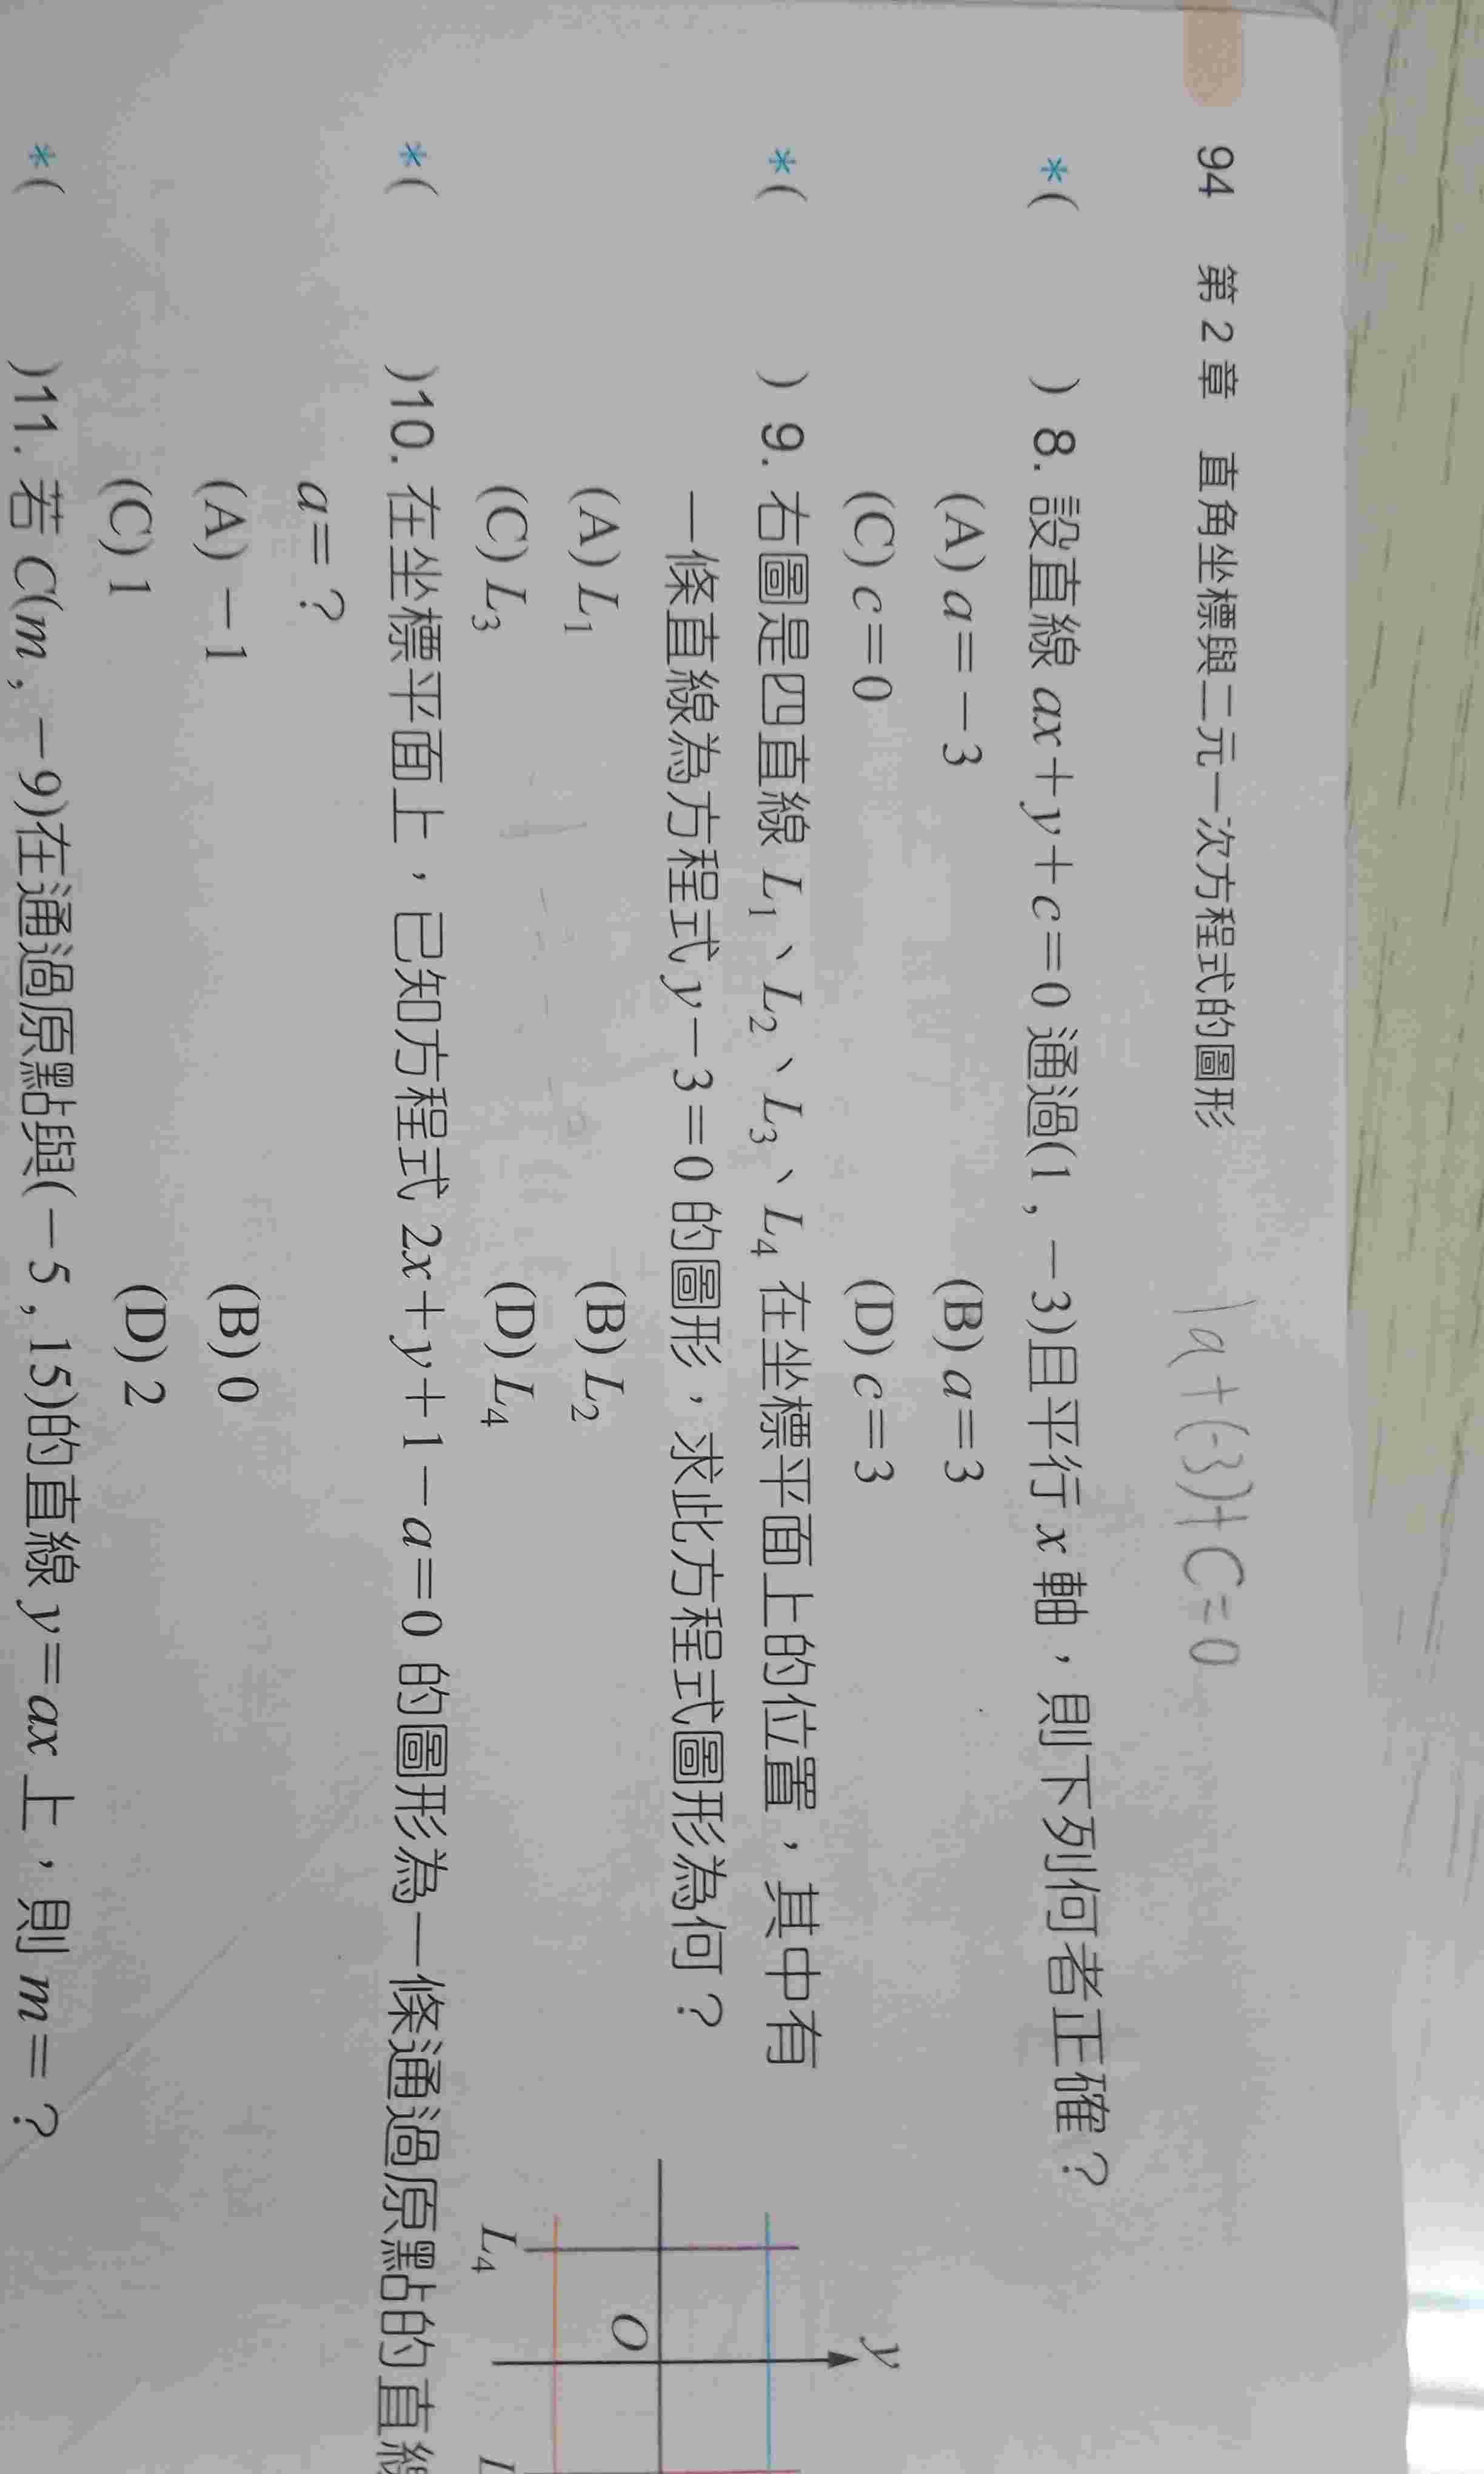 94 第 2 章 直角坐標與二元一次方程式的圖形
1a+(-3)+C=0
*( ) 8. 設直線 ax+y+c=0 通過(1,-3)且平行 x 軸,則下列何者正確?
(A) a=-3 (B) a=3
(C) c=0 (D) c=3
*( ) 9. 右圖是四直線 L₁、L₂、L₃、L₄ 在坐標平面上的位置,其中有
一條直線為方程式 y-3=0 的圖形,求此方程式圖形為何?
(A) L₁ (B) L₂
(C) L₃ (D) L₄
y
O
L₄ L
*( )10. 在坐標平面上,已知方程式 2x+y+1-a=0 的圖形為一條通過原點的直線
a=?
(A) -1 (B) 0
(C) 1 (D) 2
*( )11. 若 C(m,-9)在通過原點與(-5,15)的直線 y=ax 上,則 m=?